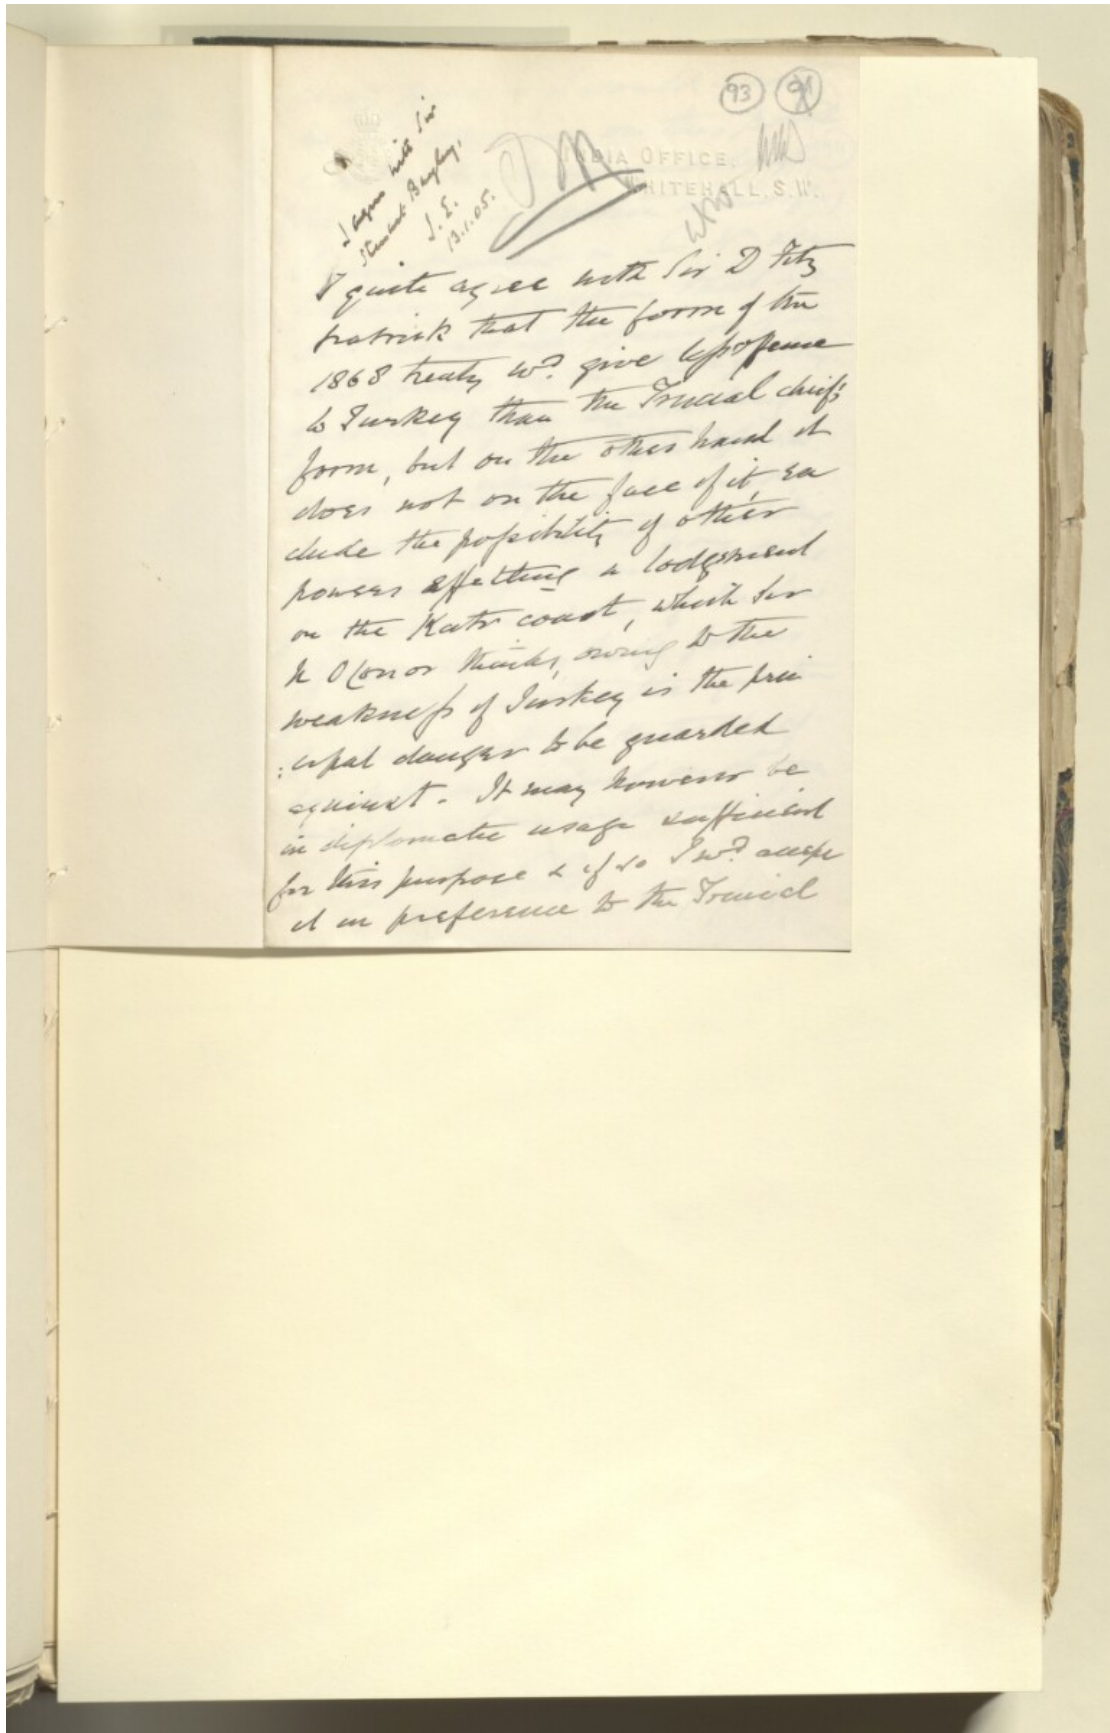 93
I agree with Sir
Steuart Bayley.
J. E.
13.1.05.
INDIA OFFICE,
WHITEHALL, S.W.
I quite agree with Sir D Fitz
patrick that the form of the
1868 treaty wd. give less offence
to Turkey than the Trucial chiefs
form, but on the other hand it
does not on the face of it, ex
clude the possibility of other
powers effecting a lodgement
on the Katr coast, which Sir
N OConor thinks, owing to the
weakness of Turkey is the prin
:cipal danger to be guarded
against. It may however be
in diplomatic usage sufficient
for this purpose & if so I wd. accept
it in preference to the Trucial